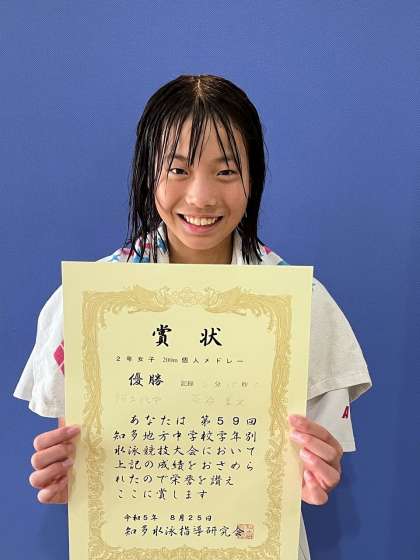 賞状
2年女子 200m個人メドレー
優勝 記録 分 秒
あなたは第59回
知多地方中学校学年別
水泳競技大会において
上記の成績をおさめら
れたので栄誉を讃え
ここに賞します
令和5年 8月25日
知多水泳指導研究会